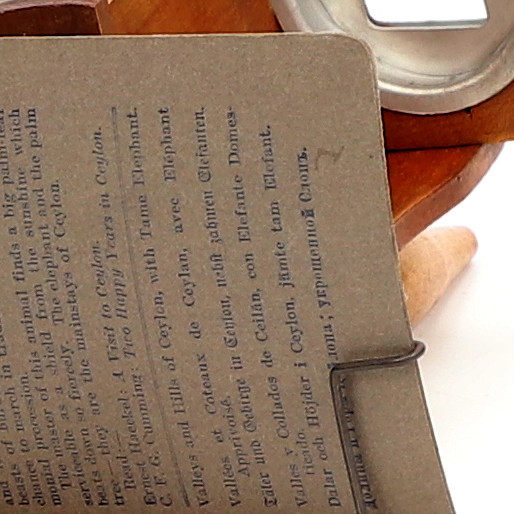 beasts to march in
chance procession. of this animal finds a big palm-leaf
monial master of shield from the sunshine which
The as a fiercely. The elephant and the palm
serviceable so the mainstays of Ceylon.
beats down they are
tree—
Read—
Ernest Haeckel: A Visit to Ceylon.
C. F. G. Cumming: Two Happy Years in Ceylon.
Valleys and Hills of Ceylon, with Tame Elephant.
Vallées et Coteaux de Ceylan, avec Eléphant
Apprivoisé.
Täler und Gebirge in Ceylon, nebst zahmen Elefanten.
Valles y Collados de Ceilán, con Elefante Domes-
ticado.
Dalar och Höjder i Ceylon, jämte tam Elefant.
Долины и ; укрощенный Слонъ.